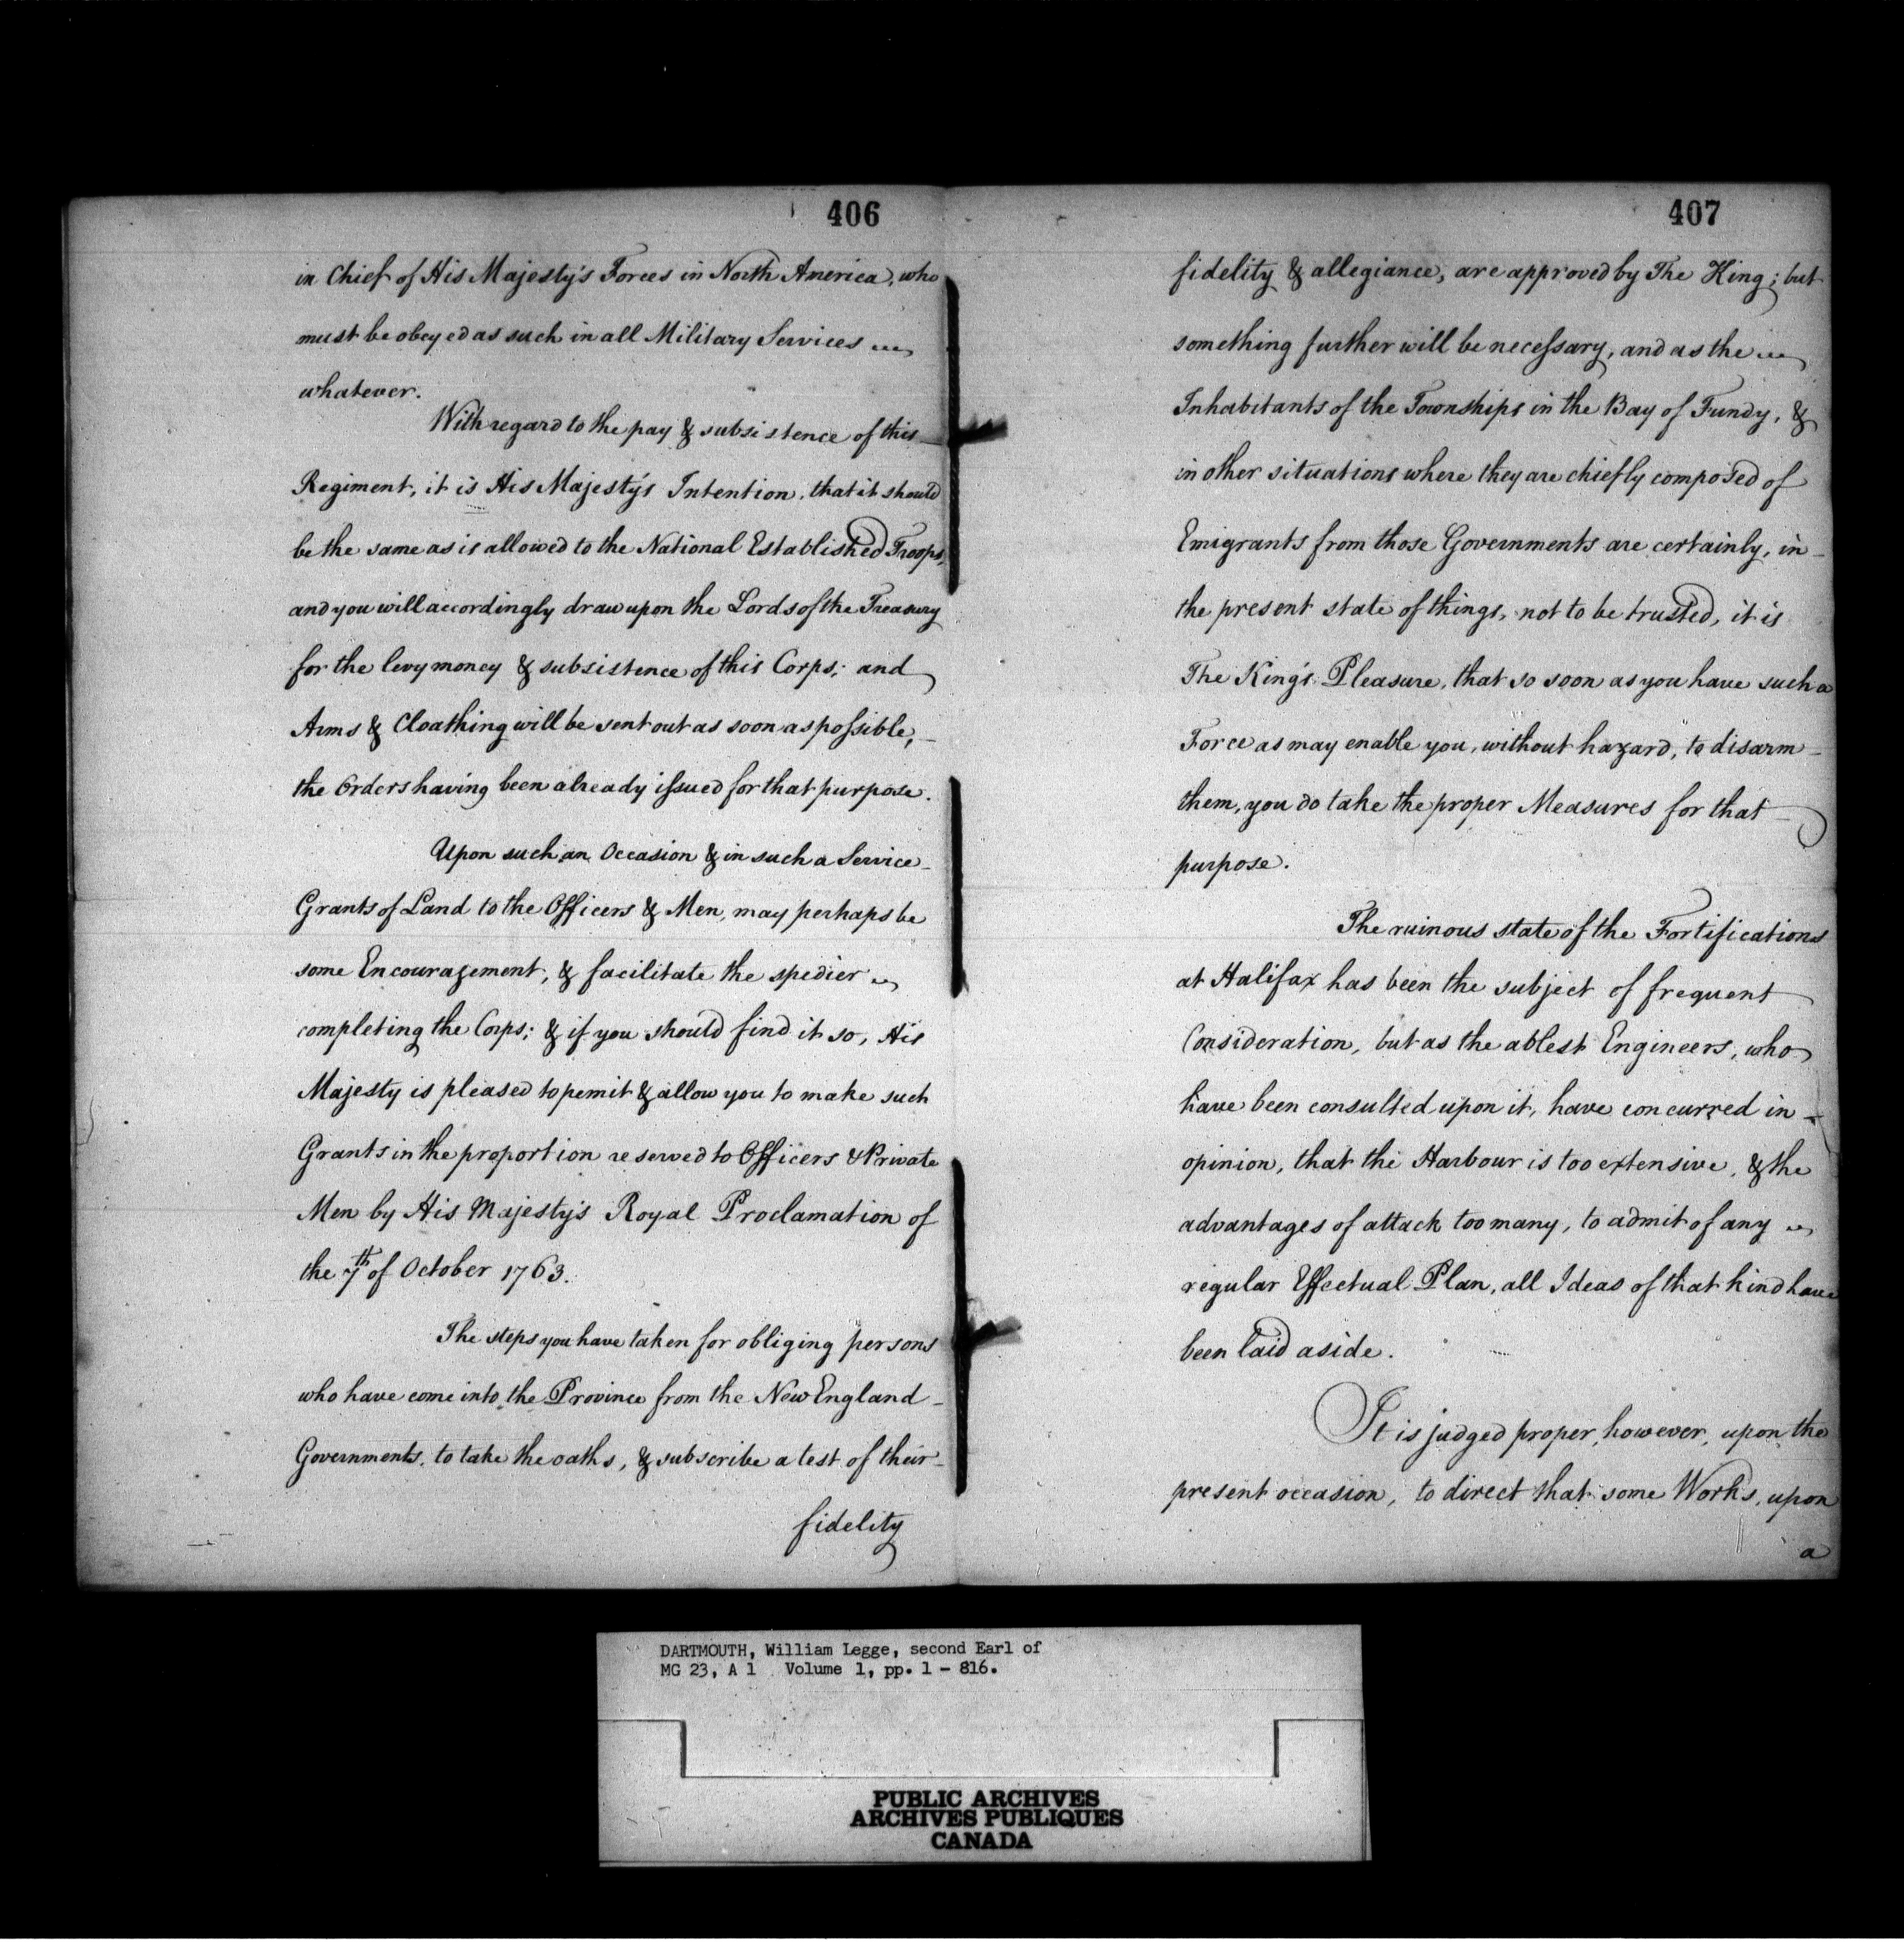 406
in Chief of His Majesty's Forces in North America, who
must be obeyed as such in all Military Services
whatever.
With regard to the pay & subsistence of this
Regiment, it is His Majesty's Intention, that it should
be the same as is allowed to the National Established Troops,
and you will accordingly draw upon the Lords of the Treasury
for the levy money & subsistence of this Corps; and
Arms & Cloathing will be sent out as soon as possible,
the Orders having been already issued for that purpose.
Upon such an Occasion & in such a Service
Grants of Land to the Officers & Men, may perhaps be
some Encouragement, & facilitate the spedier
completing the Corps; & if you should find it so, His
Majesty is pleased to pemit & allow you to make such
Grants in the proportion reserved to Officers & Private
Men by His Majesty's Royal Proclamation of
the 7th of October 1763.
The steps you have taken for obliging persons
who have come into the Province from the New England
Governments, to take the oaths, & subscribe a test of their
fidelity
407
fidelity & allegiance, are approved by The King; but
something further will be necessary, and as the
Inhabitants of the Townships in the Bay of Fundy, &
in other situations where they are chiefly composed of
Emigrants from those Governments are certainly, in
the present state of things, not to be trusted, it is
The King's Pleasure, that so soon as you have such a
Force as may enable you, without hazard, to disarm
them, you do take the proper Measures for that
purpose.
The ruinous state of the Fortifications
at Halifax has been the subject of frequent
Consideration, but as the ablest Engineers, who
have been consulted upon it, have concurred in
opinion, that the Harbour is too extensive, & the
advantages of attack too many, to admit of any
regular Effectual Plan, all Ideas of that kind have
been laid aside.
It is judged proper, however, upon the
present occasion, to direct that some Works, upon
a
DARTMOUTH, William Legge, second Earl of
MG 23, A 1 Volume 1, pp. 1 - 816.
PUBLIC ARCHIVES
ARCHIVES PUBLIQUES
CANADA